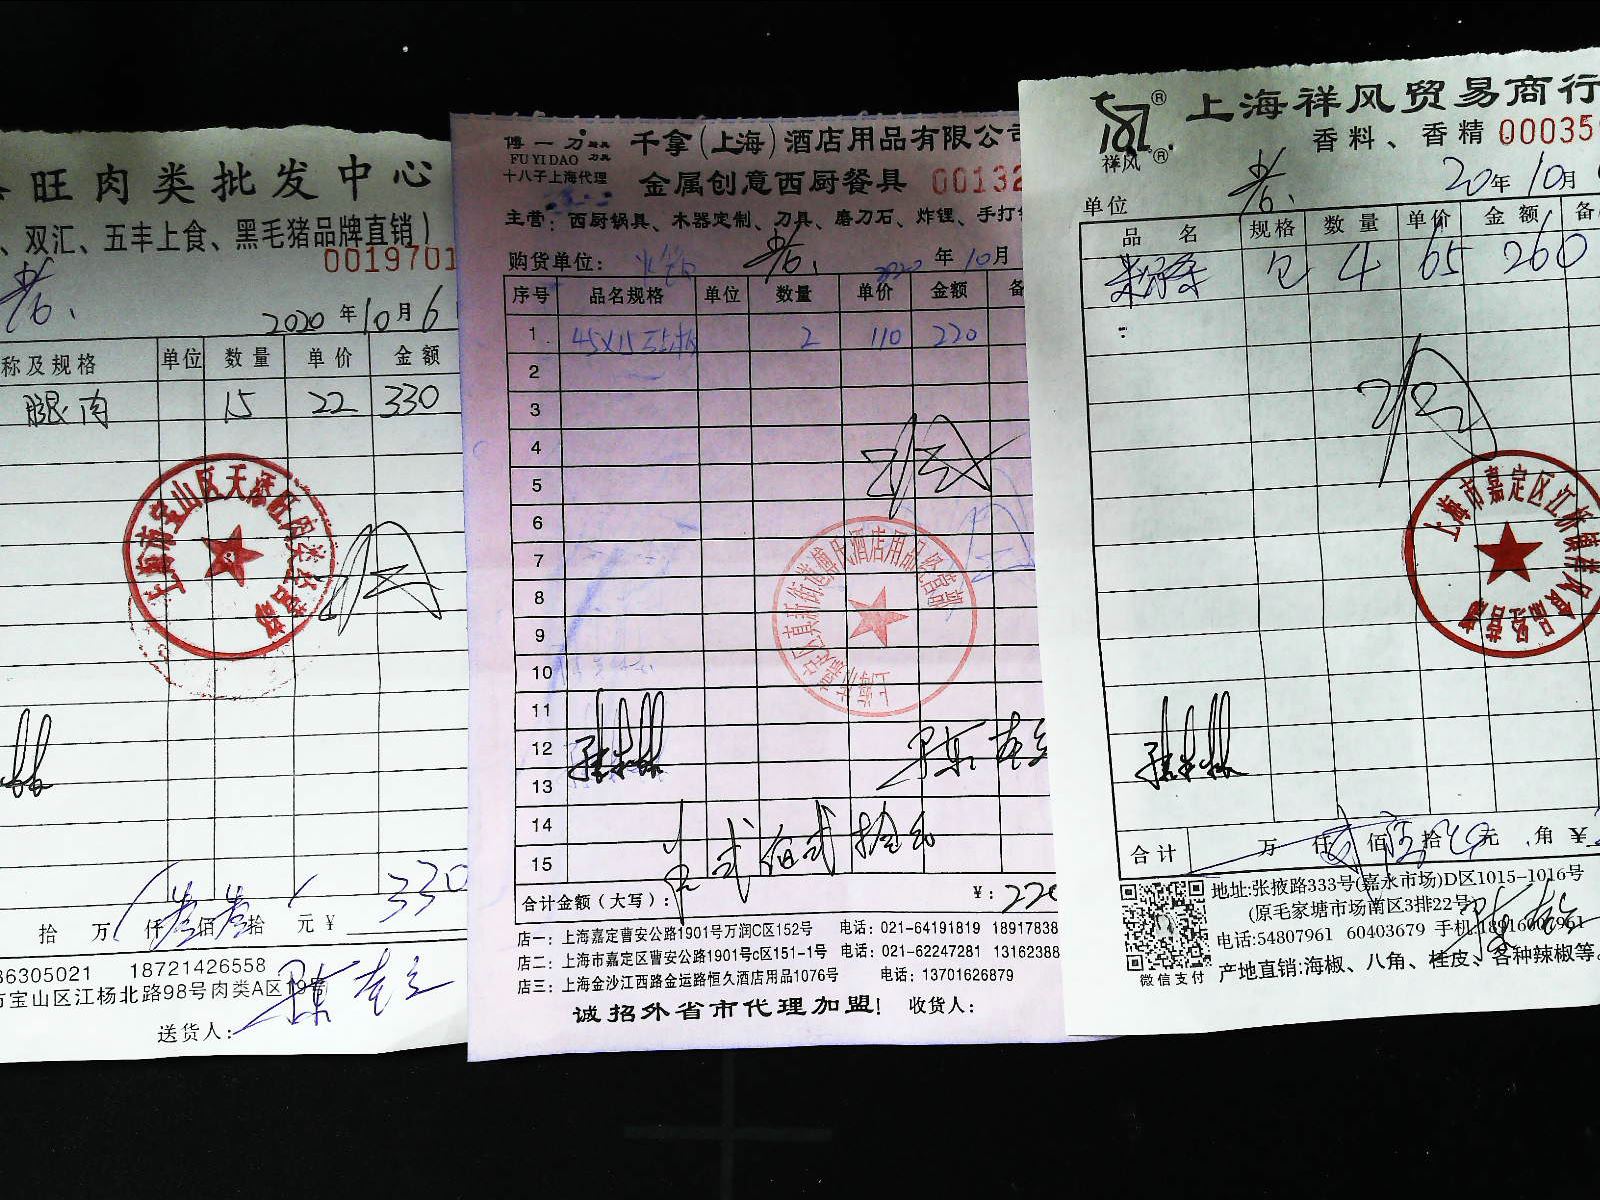 旺肉类批发中心
、双汇、五丰上食、黑毛猪品牌直销）
0019701
2020 年 10 月 6
称及规格 单位 数量 单价 金额
腿肉 15 22 330
上海市宝山区天添旺肉类经营部
拾 万 仟 叁 佰 叁 拾 元 ¥ 330
36305021 18721426558
市宝山区江杨北路98号肉类A区19号
送货人：
傅一刀
FU YI DAO
十八子上海代理
千拿（上海）酒店用品有限公司
金属创意西厨餐具 00132
主营：西厨锅具、木器定制、刀具、磨刀石、炸锂、手打
购货单位： 2020 年 10 月
序号 品名规格 单位 数量 单价 金额 备
1 45X15 2 110 220
2
3
4
5
6
7
8
9
10
11
12
13
14
15
合计金额（大写）： ¥：220
店一：上海嘉定曹安公路1901号万润C区152号 电话：021-64191819 18917838
店二：上海市嘉定区曹安公路1901号c区151-1号 电话：021-62247281 13162388
店三：上海金沙江西路金运路恒久酒店用品1076号 电话：13701626879
诚招外省市代理加盟！ 收货人：
祥风
上海祥风贸易商行
香料、香精 00035
单位 20 年 10 月
品名 规格 数量 单价 金额 备
包 4 65 260
上海市嘉定区江桥镇祥风食品经营部
合计 万 仟 佰 拾 元 角 ¥
地址:张掖路333号(嘉永市场)D区1015-1016号
(原毛家塘市场南区3排22号)
电话:54807961 60403679 手机:18916007961
产地直销:海椒、八角、桂皮、各种辣椒等。
微信支付